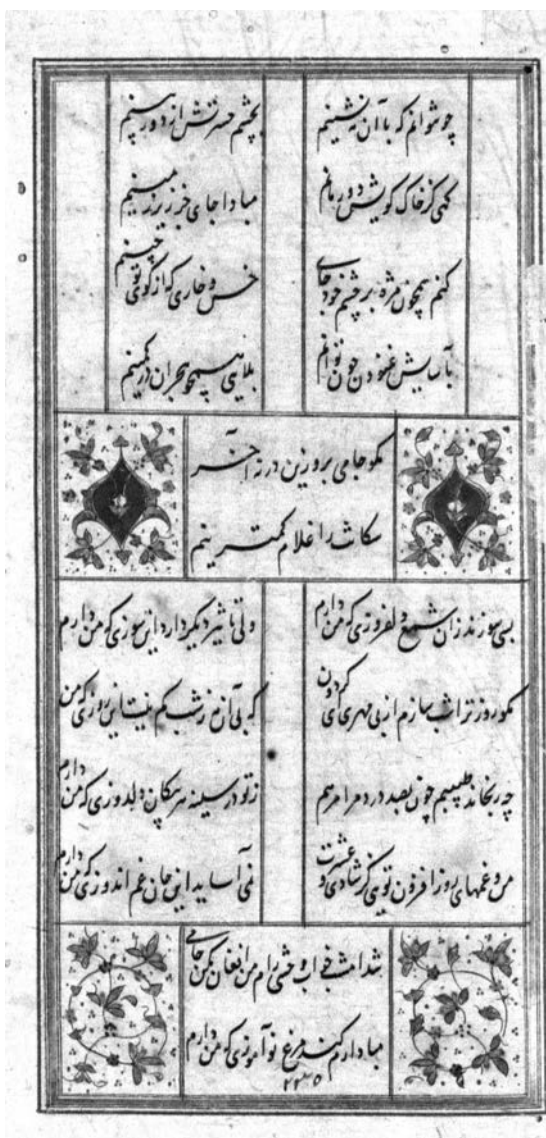 چو نتوانم که با آن مه نشینم
بچشم حسرتش از دور بینم
کهی کز خاک کویش دور مانم
مبادا جای جز زیر زمینم
کنم همچون مژه بر چشم خود جای
خس و خاری که از کوی تو چینم
بآسایش غنودن چون توانم
بلایی همچو هجران در کمینم
مکو جامی برو زین در نه آخر
سکانت را غلام کمترینم
بسی سوزند زان شمع دلفروزی که من دارم
ولی تاثیر دیکر دارد این سوزی که من دارم
مکو روز ترا شب سازم از بی مهری ای کردون
که بی آن مه ز شب کم نیست این روزی که من دارم
چه رنجاند طبیبم چون بصد درد مرا مرهم
ز تو در سینه هر پیکان دلدوزی که من دارم
من و غمهای روز افزون تویی کر شادی و عشرت
نمی آساید این جان غم اندوزی که من دارم
شد امشب خواب وحشی رام من افغان مکن جامی
مبادا رم کند مرغ نوآموزی که من دارم